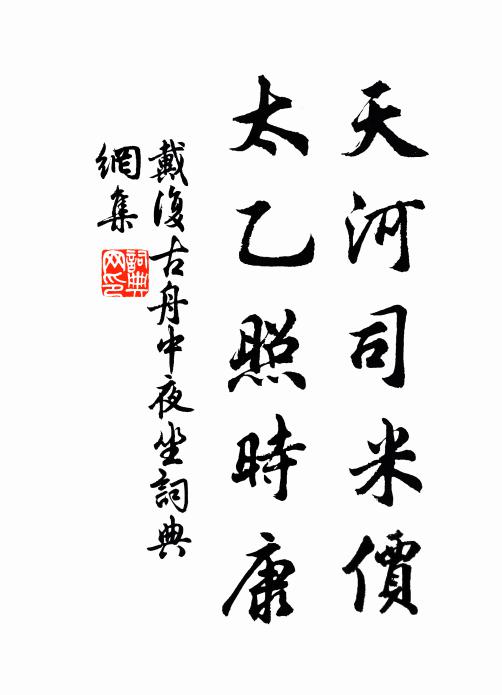 天河司米價
太乙照時康
戴復古舟中夜坐詞典
網集
詞典
网印